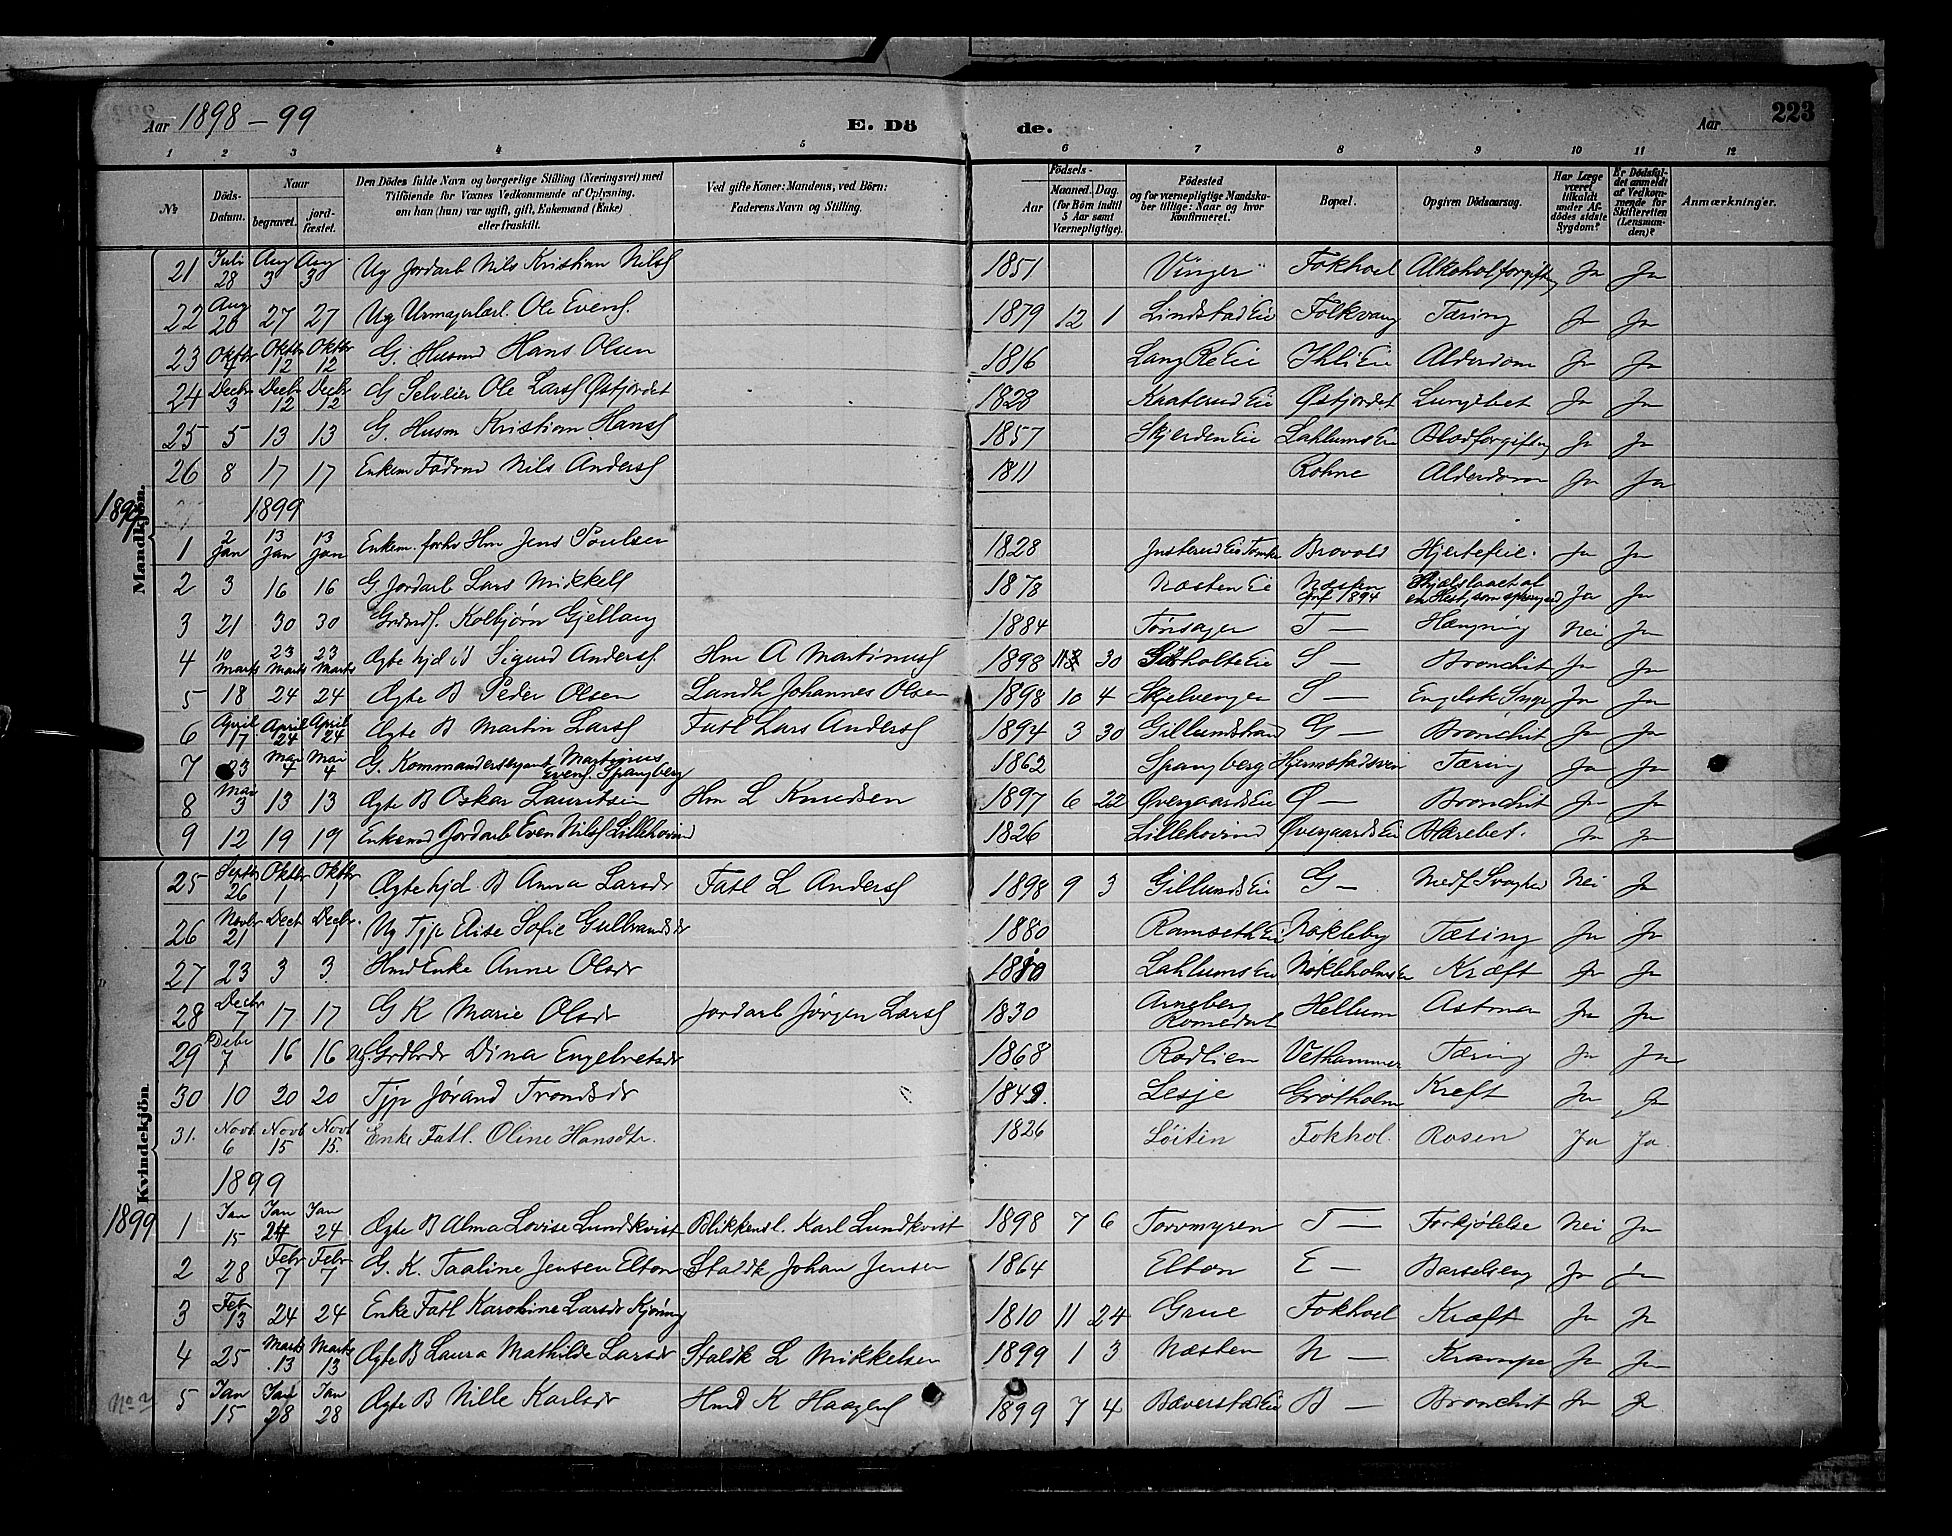 Aar 1898-99 E. Döde. Aar 223
1 2 3 4 5 6 7 8 9 10 11 12
№ Döds-Datum. Naar begravet. jordfæstet. Den Dödes fulde Navn og borgerlige Stilling (Næringsvei) med Tilføiende for Voxnes Vedkommende af Oplysning, om han (hun) var ugift, gift, Enkemand (Enke) eller fraskilt. Ved gifte Koner: Mandens, ved Börn: Faderens Navn og Stilling. Födsels- Aar Maaned. Dag. (for Börn indtil 5 Aar samt Værnepligtige). Födested og for værnepligtige Mandskaber tillige: Naar og hvor konfirmeret. Bopæl. Opgiven Dödsaarsag. Har Læge været tilkaldt under Afdödes sidste Sygdom? Er Dödsfaldet anmeldt af Vedkommende for Skifteretten (Lensmanden)? Anmærkninger.
Mandkjön.
21 Juli 28 Aug 3 Aug 3 Ug Jordarb Nils Kristian Nilss 1851 Vinger Fokhoel Alkoholforgiftn Ja Ja
22 Aug 20 27 27 Ug Urmagerlærl. Ole Evens. 1879 12 1 Lindstad Eie Folkvang Tæring Ja Ja
23 Oktbr 4 Oktbr 12 Oktbr 12 G. Husmd Hans Olsen 1816 Eie Ihli Eie Alderdom Ja Ja
24 Decbr 3 Decbr 12 Decbr 12 G Selveier Ole Larss Østfjordet 1828 Knaterud Eie Østfjordet Lungebet Ja Ja
25 5 13 13 G. Husm Kristian Hanss 1857 Skjerden Eie Lahlums Eie Blodforgiftn Ja Ja
26 8 17 17 Enkem Födrmd Nils Anderss 1811 Rohne Alderdom Ja Ja
1899
1 2 Jan 13 Jan 13 Jan Enkem. forhv Hm Jens Poulsen 1828 Insterud Eie Brovold Hjertefeil. Ja Ja
2 3 16 16 G. Jordarb Lars Mikkels 1878 Næsten Eie Næsten 1894 Ihjælslaaet af en Hest, som Ja Ja
3 21 30 30 Grdmds. Kolbjørn Gjellaug 1884 Tønsager T— Hængning Nei Ja
4 10 Marts 23 Marts 23 Marts Ægte hjd d Sigurd Anderss. Hm A Martinuss 1898 30 Eie S— Bronchit Ja Ja
5 18 24 24 Ægte B Peder Olsen Landh Johannes Olsen 1898 10 4 Skjelvenger S— Engelsk Syge Ja Ja
6 April 17 April 24 April 24 Ægte B Martin Larss Fatl Lars Anderss 1894 3 30 Gillundstrand G— Bronchit Ja Ja
7 23 Mai 4 Mai 4 G. Kommandersergeant Martinius Evens. Spangberg 1862 Spangberg Hjemstadsveien Tæring Ja Ja
8 Mai 3 13 13 Ægte B Oskar Lauritsen Hm L Knudsen 1897 6 22 Øvergaards Eie Ø— Bronchit Ja Ja
9 12 19 19 Enkemd Jordarb Even Nilss Lillehovind 1826 Lillehovind Øvergaards Eie Blærebet. Ja Ja
Kvindekjön
25 Septbr 26 Oktbr 1 Oktbr 1 Ægte hjd. B Anna Larsdr Fatl L Anderss 1898 9 3 Gillunds Eie G— Medf Svaghed Nei Ja
26 Novbr 21 Decbr 1 Decbr. 1 Ug Tjp Elise Sofie Gulbrandsdr 1880 Ramseth Eie Nøkleby Tæring Ja Ja
27 23 3 3 Hmd Enke Anne Olsdr Lahlums Eie Nøkleholms Eie Kræft Ja Ja
28 Decbr 7 17 17 G K Marie Olsdr Jordarb Jørgen Larss 1830 Arneberg Romedal Hellum Astma Ja Ja
29 Debr 7 16 16 Ug. Grdbrdr Dina Engebretsdr 1868 Rødlien Vethammer Tæring Ja Ja
30 10 20 20 Tjp Jørand Trondsdr 1849. Lesje Grøtholm Kræft Ja Ja
31. Novb 6 Novb 15 Novb 15. Enke Fatl. Oline Hansdtr. 1826 Løiten Fokhol. Rosen Ja Ja
1899
1899
1 Jan 15 Jan 24 Jan 24 Ægte B Alma Lovise Lundkvist Blikkensl. Karl Lundkvist 1898 7 6 Torvmyren T— Forkjølelse Nei Ja
2 28 Febr 7 Febr 7 G. K. Taaline Jensen Elton Staldk Johan Jensen 1864 Elton E— Barselseng Ja Ja
3 Feb 13 24 24 Enke Fatl Karoline Larsdr Kjøning 1810 11 24 Grue Fokhoel Kræft Ja Ja
4 25 Marts 13 Marts 13 Ægte B Laura Mathilde Larsdr Staldk L Mikkelsen 1899 1 3 Næsten N— Krampe Ja Ja
No 2 5 Jan 15 Jan 28 Jan 28 Ægte B Nille Karlsdr Hmd K Haagens 1899 7 4 Bæverstad Eie B— Bronchit Ja Ja